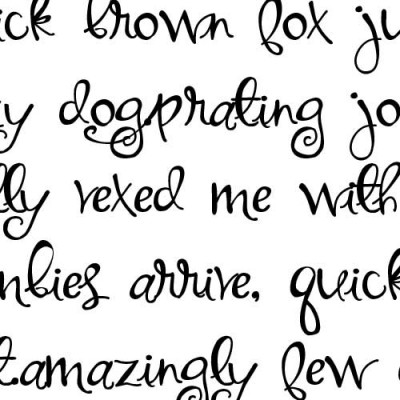 ick brown fox ju
y dog.prating jo
lly vexed me with
mbies arrive, quick
t.amazingly few